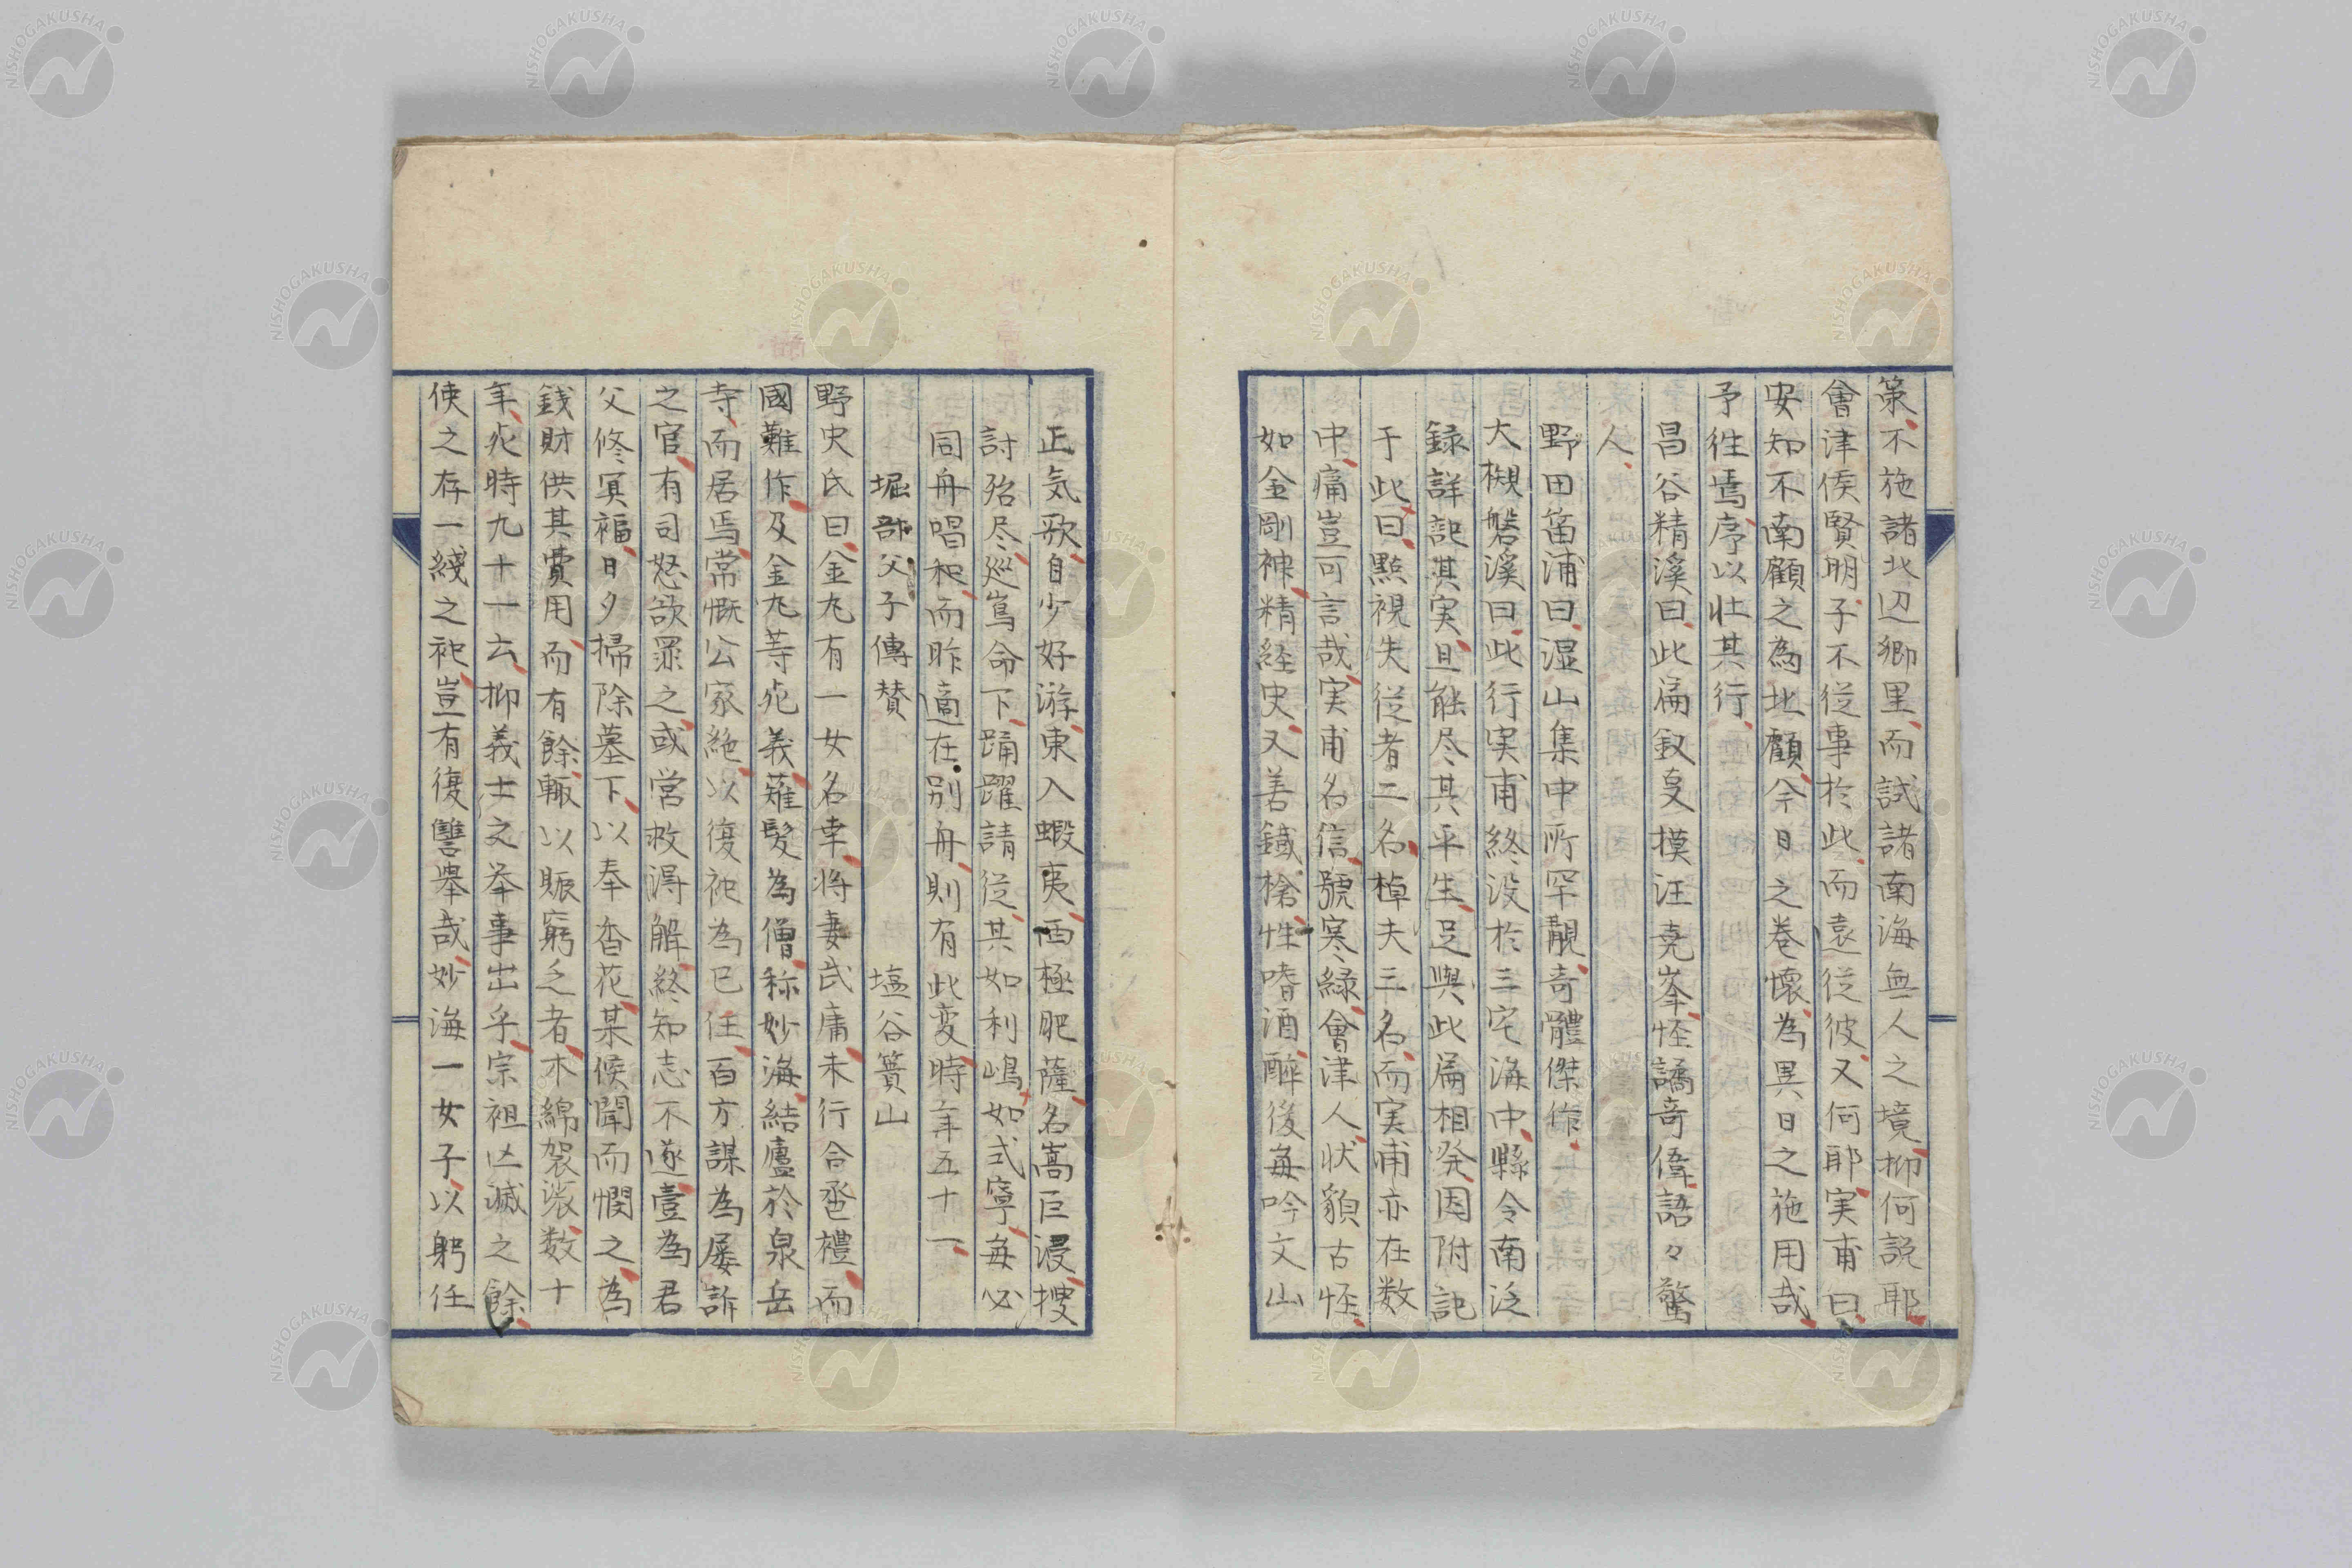 策不施諸北辺郷里而試諸南海無人之境抑何説耶
會津侯賢明子不従事於此而遠従彼又何耶実甫曰
安知不南顧之為北顧今日之巻懐為異日之施用哉
予徃焉序以壮其行
昌谷精溪曰此篇叙叟摸汪堯峯怪譎奇偉語々驚
人
野田笛浦曰湿山集中所罕覯奇體傑作
大槻磐溪曰此行実甫終没於三宅海中縣令南泛
録詳記其実且能尽其平生足與此篇相発因附記
于此曰點視失従者二名棹夫三名而実甫亦在数
中痛豈可言哉実甫名信號寒緑會津人状貌古怪
如金剛神精経史又善鎗槍性嗜酒酔後毎吟文山
正気歌自少好游東入蝦夷西極肥薩名嵩巨浸捜
討殆尽巡嶌命下踊躍請従其如利嶋如式寧毎必
同舟唱和而昨適在別舟則有此変時年五十一
堀部父子傳賛　塩谷簣山
野史氏曰金丸有一女名幸将妻武庸未行合巹禮而
國難作及金丸等死義薙髪為僧称妙海結廬於泉岳
寺而居焉常慨公家絶以復祀為已任百方謀為屡訴
之官有司怒欲罪之或営救得解終知志不遂壹為君
父修冥福日夕掃除墓下以奉香花某侯聞而憫之為
銭財供其費用而有餘輙以賑窮乏者木綿袈裟数十
年死時九十一云抑義士之挙事出乎宗祖亡滅之餘
使之存一綫之祀豈有復讐挙哉妙海一女子以躬任